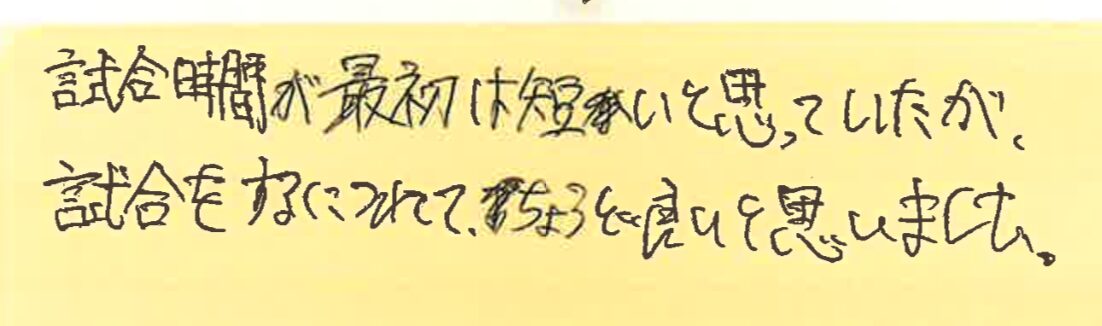 試合時間が最初は短いと思っていたが、
試合をするにつれて、ちょうど良いと思いました。